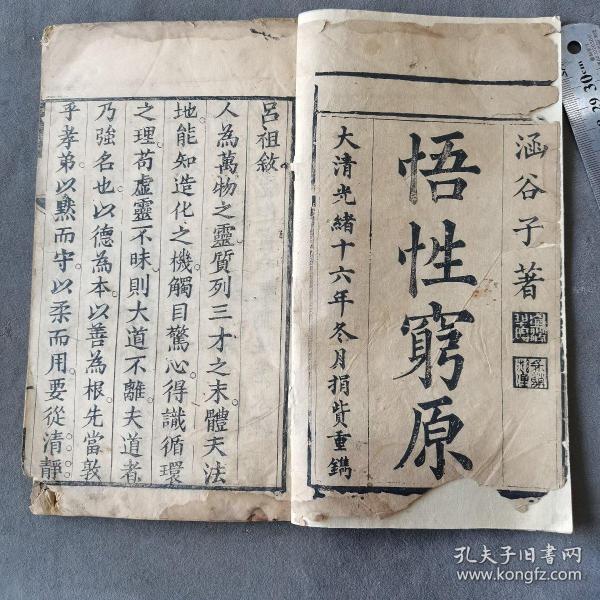 涵谷子著
悟性窮原
大清光緒十六年冬月捐貲重鐫
呂祖敘
人為萬物之靈質列三才之末體天法
地能知造化之機觸目驚心得識循環
之理苟虛靈不昧則大道不離夫道者
乃強名也以德為本以善為根先當敦
乎孝弟以默而守以柔而用要從清靜
29 30cm
孔夫子旧书网
www.kongfz.com